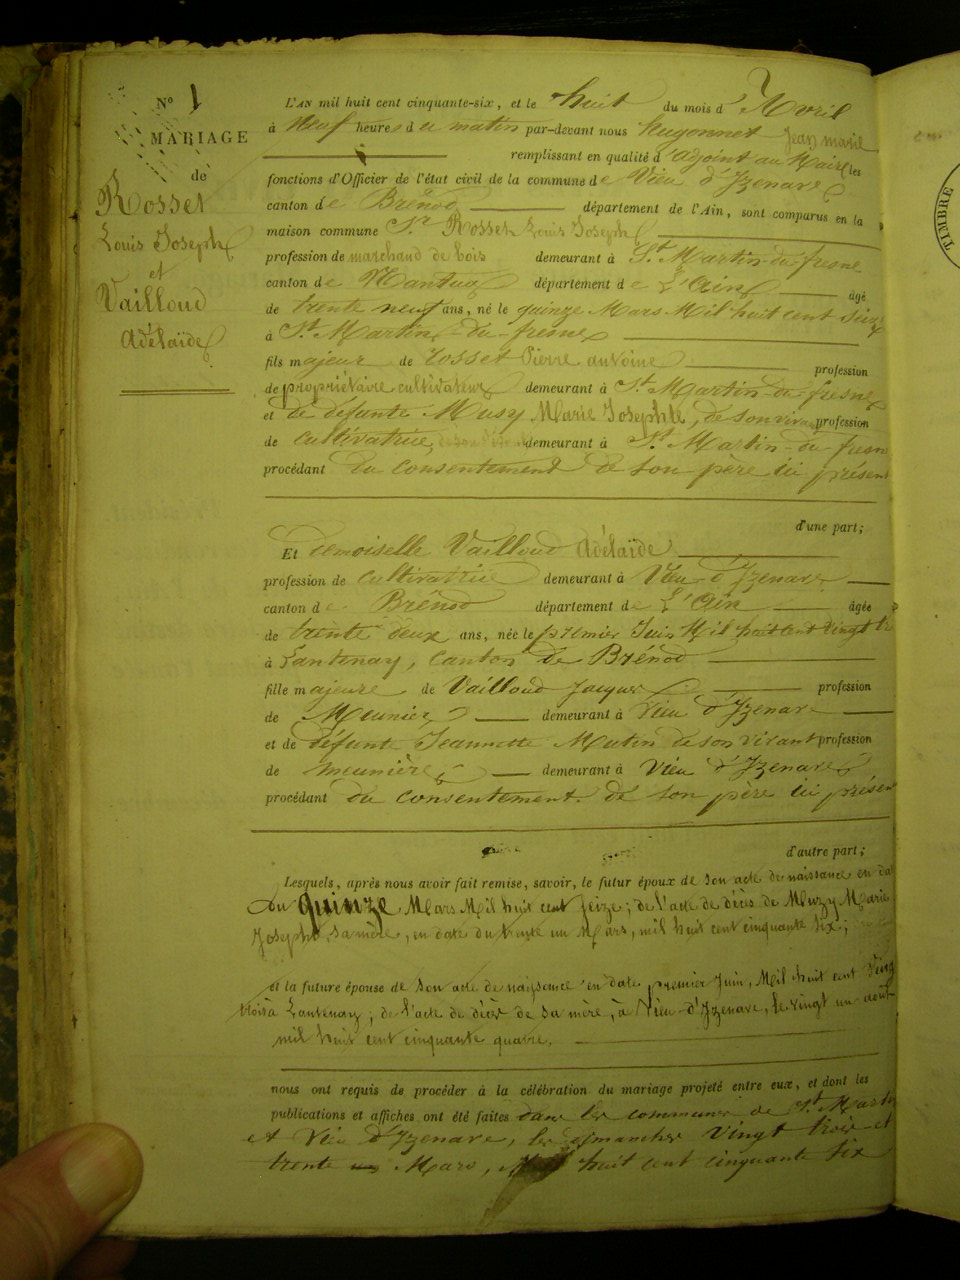 N° 1
MARIAGE
de
Rosset
Louis Joseph
et
Vailloud
Adélaïde
L'AN mil huit cent cinquante-six, et le huit du mois d'Avril
à Neuf heures du matin par-devant nous Hugonnet Jean marie
remplissant en qualité d'adjoint au Maire les
fonctions d'Officier de l'état civil de la commune de Vieu d'Izenave
canton de Brénod département de l'Ain, sont comparus en la
maison commune Sr Rosset Louis Joseph
profession de marchand de bois demeurant à St Martin-du-fresne
canton de Nantua département de L'Ain âgé
de trente neuf ans, né le quinze Mars Mil huit cent Seize
à St Martin-du-fresne
fils majeur de Rosset Pierre antoine profession
de propriétaire cultivateur demeurant à St Martin-du-fresne
et de défunte Musy Marie Josephte, de son vivant profession
de cultivatrice, demeurant à St Martin-du-fresne
procédant du consentement de son père ici présent
d'une part;
Et demoiselle Vailloud Adélaïde
profession de cultivatrice demeurant à Vieu d'Izenave
canton de Brénod département de L'Ain âgée
de trente deux ans, née le premier Juin Mil huit cent vingt
à Lantenay, canton de Brénod
fille majeure de Vailloud Jacques profession
de Meunier demeurant à Vieu d'Izenave
et de défunte Jeannette Mutin de son vivant profession
de meunière demeurant à Vieu d'Izenave
procédant du consentement de son père ici présent
d'autre part;
Lesquels, après nous avoir fait remise, savoir, le futur époux de son acte de naissance en da
du quinze Mars Mil huit cent Seize; de l'acte de décès de Muzy Marie
Josephte, sa mère, en date du trente un Mars, mil huit cent cinquante six;
et la future épouse de son acte de naissance en date premier Juin, Mil huit cent vingt
trois à Lantenay; de l'acte de décès de sa mère, à Vieu-d'Izenave, le vingt un aout
mil huit cent cinquante quatre.
nous ont requis de procéder à la célébration du mariage projeté entre eux, et dont les
publications et affiches ont été faites dans les communes de St Martin
et Vieu d'Izenave, les dimanches vingt trois et
trente Mars, Mil huit cent cinquante six
TIMBRE